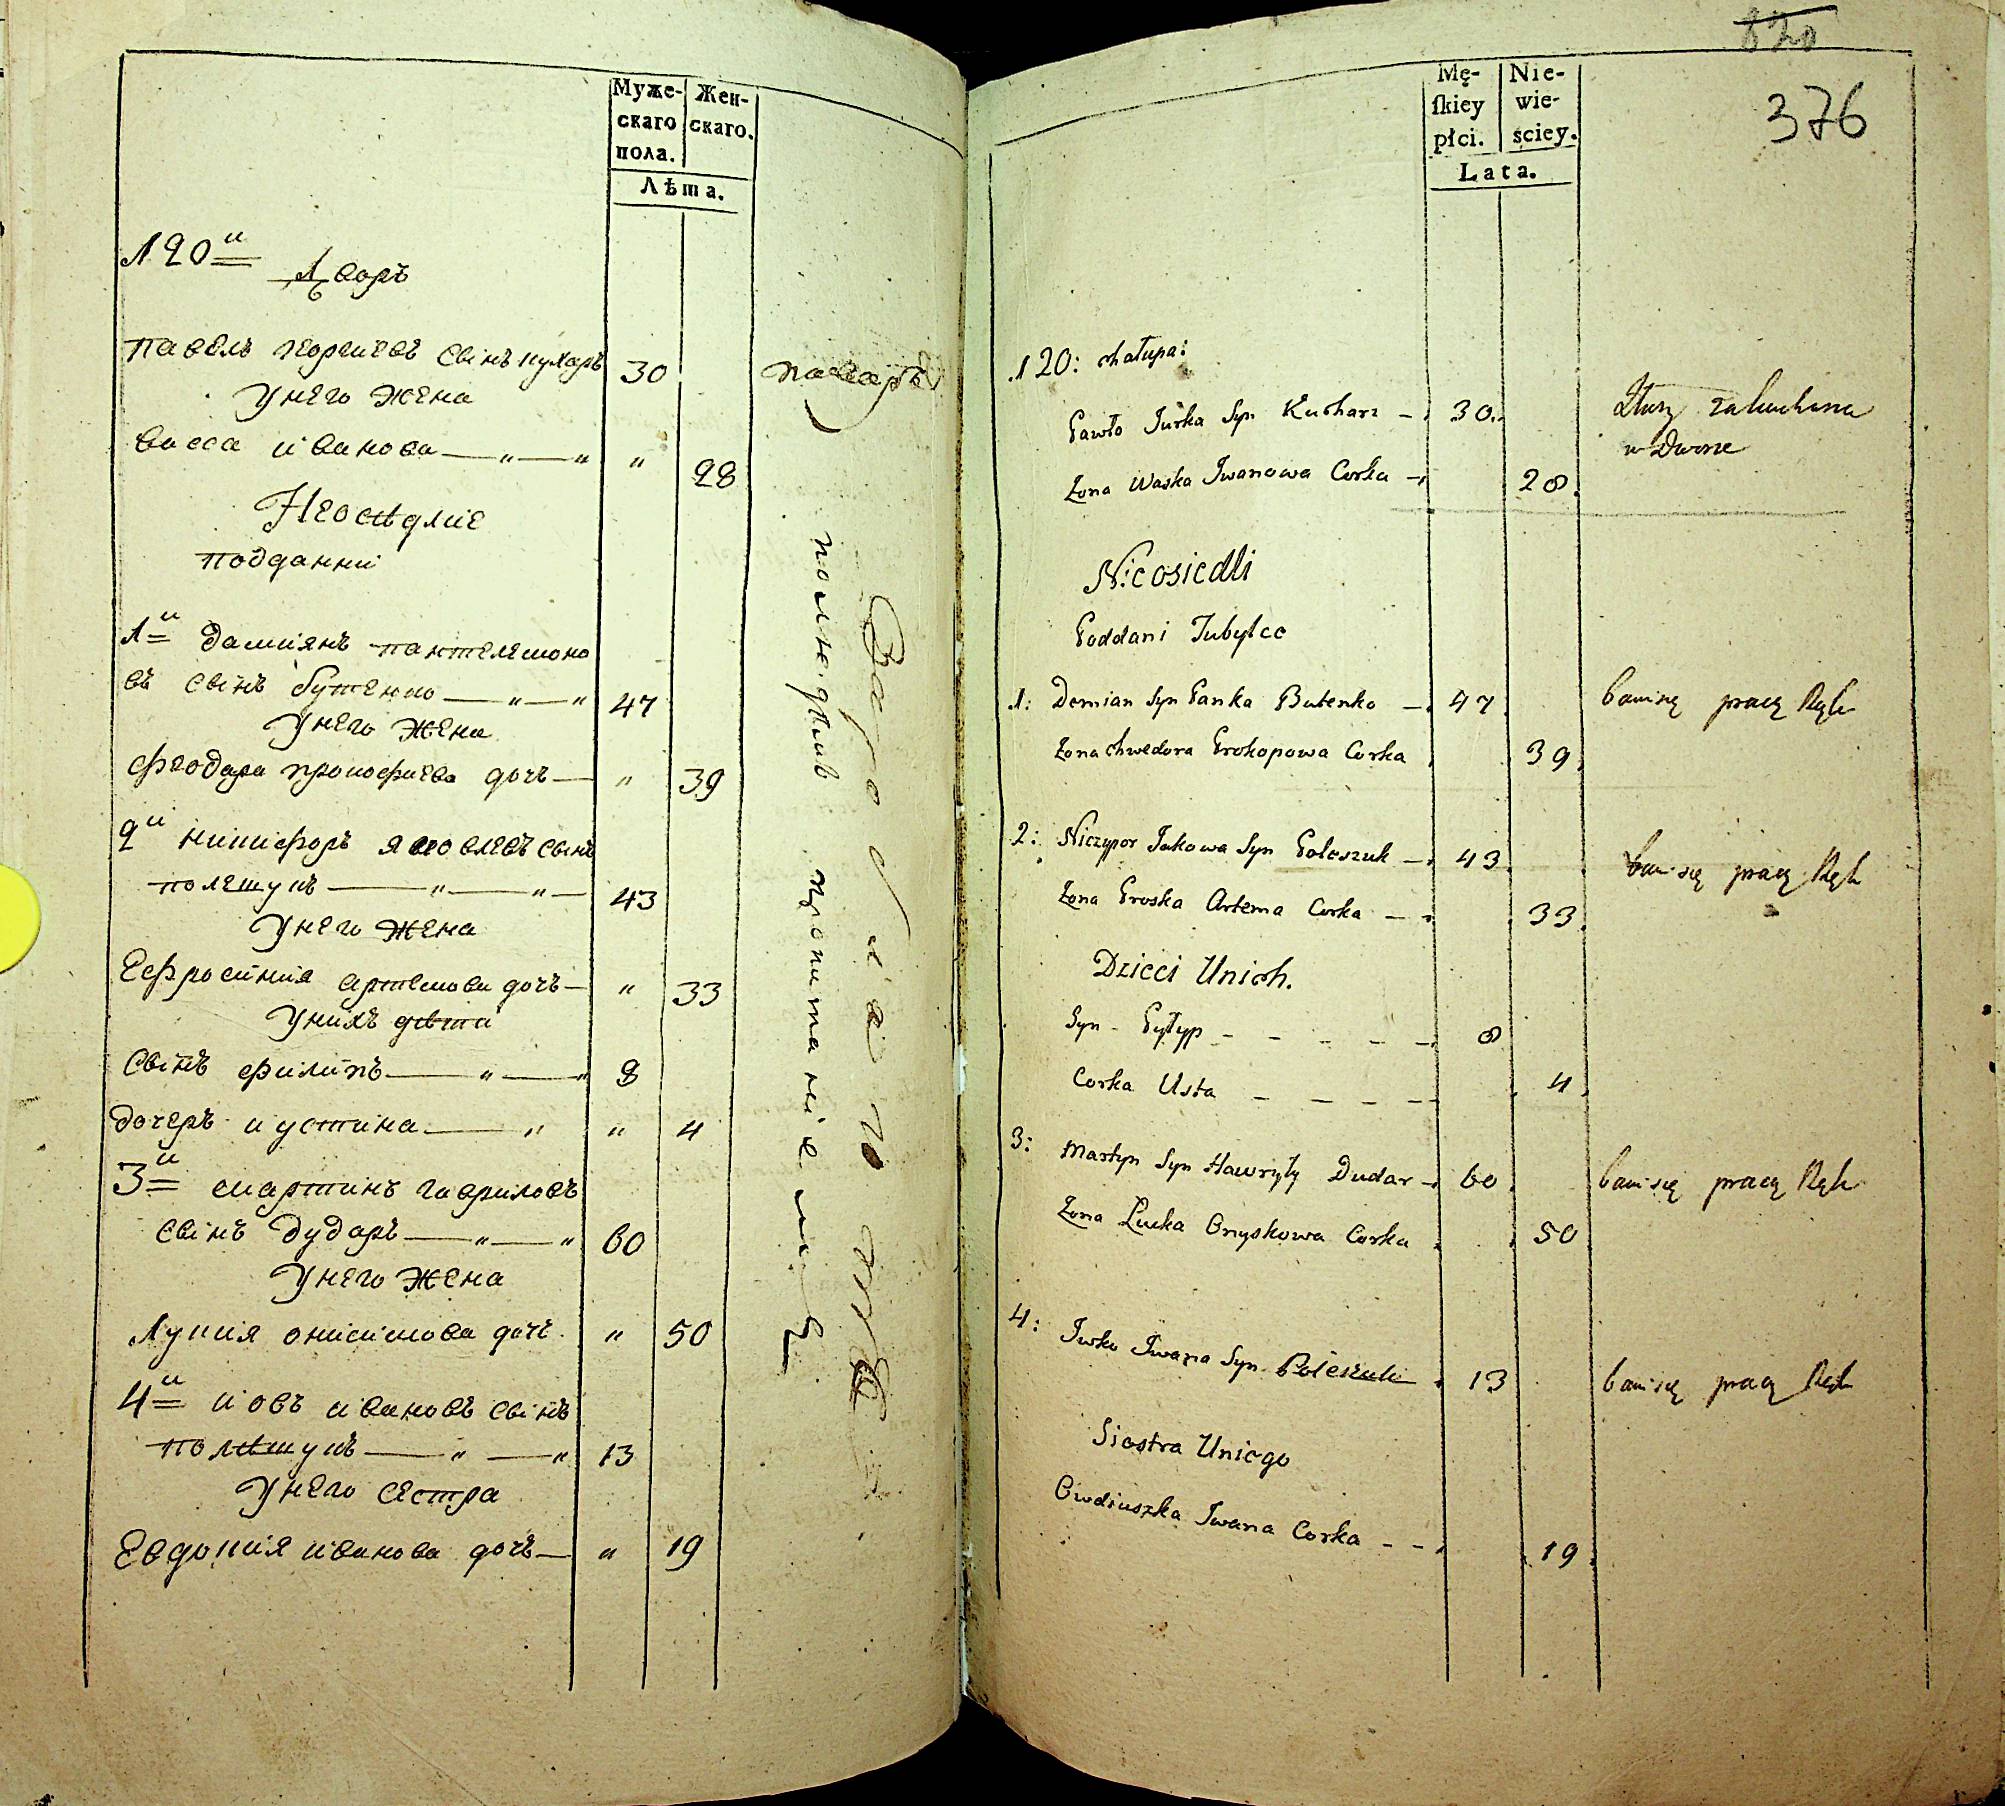 Муже-
скаго
пола.
Жен-
скаго.
Лѣта.
120й
Дворъ
павелъ георгиевъ синъ кухаръ 30
Унего жена
васса иванова — „ — „ „ 28
Неосѣдлие
подданни
1й дамиянъ пантелемоно
въ синъ бутенко — „ — „ 47
Унего жена
феодора прокофиева дочъ — „ 39
2й никифоръ яковлевъ синъ
полешукъ — „ — „ — 43
Унего жена
Ефросиния артемова дочъ — „ 33
Унихъ дѣти
Синъ филипъ — „ — „ 8
дочеръ иустина — „ „ 4
3й мартинъ гавриловъ
синъ дударъ — „ — „ 60
Унего жена
Лукия онисимова дочъ „ 50
4й иовъ ивановъ синъ
полѣшукъ — „ — „ 13
Унего сестра
Евдокия иванова дочъ — „ 19
поваръ
пропитание
820
376
Mę-
ſkiey
płci.
Nie-
wie-
ściey.
Lata.
120: chałupa:
Pawło Jurka Syn Kucharz 30.
Żona Waska Iwanowa Corka 28.
Służy za kucharza
w Dworze
Nieosiedli
Poddani Tubylce
1: Demian Syn Panka Butenko 47 bawi się pracą Rąk
Żona Chwedora Prokopowa Corka 39.
2: Niczypor Jakowa Syn Poleszuk 43 bawi się pracą Rąk
Żona Proska Artema Corka 33.
Dzieci Unich.
Syn - Pyłyp - - - - 8
Corka Usta - - - - 4
3: Martyn Syn Hawryły Dudar 60 bawi się pracą Rąk
Żona Łucka Onyskowa Corka 50
4: Iwko Iwana Syn Poleszuk 13 bawi się pracą Rąk
Siostra Uniego
Owdiuszka Iwana Corka - - 19.